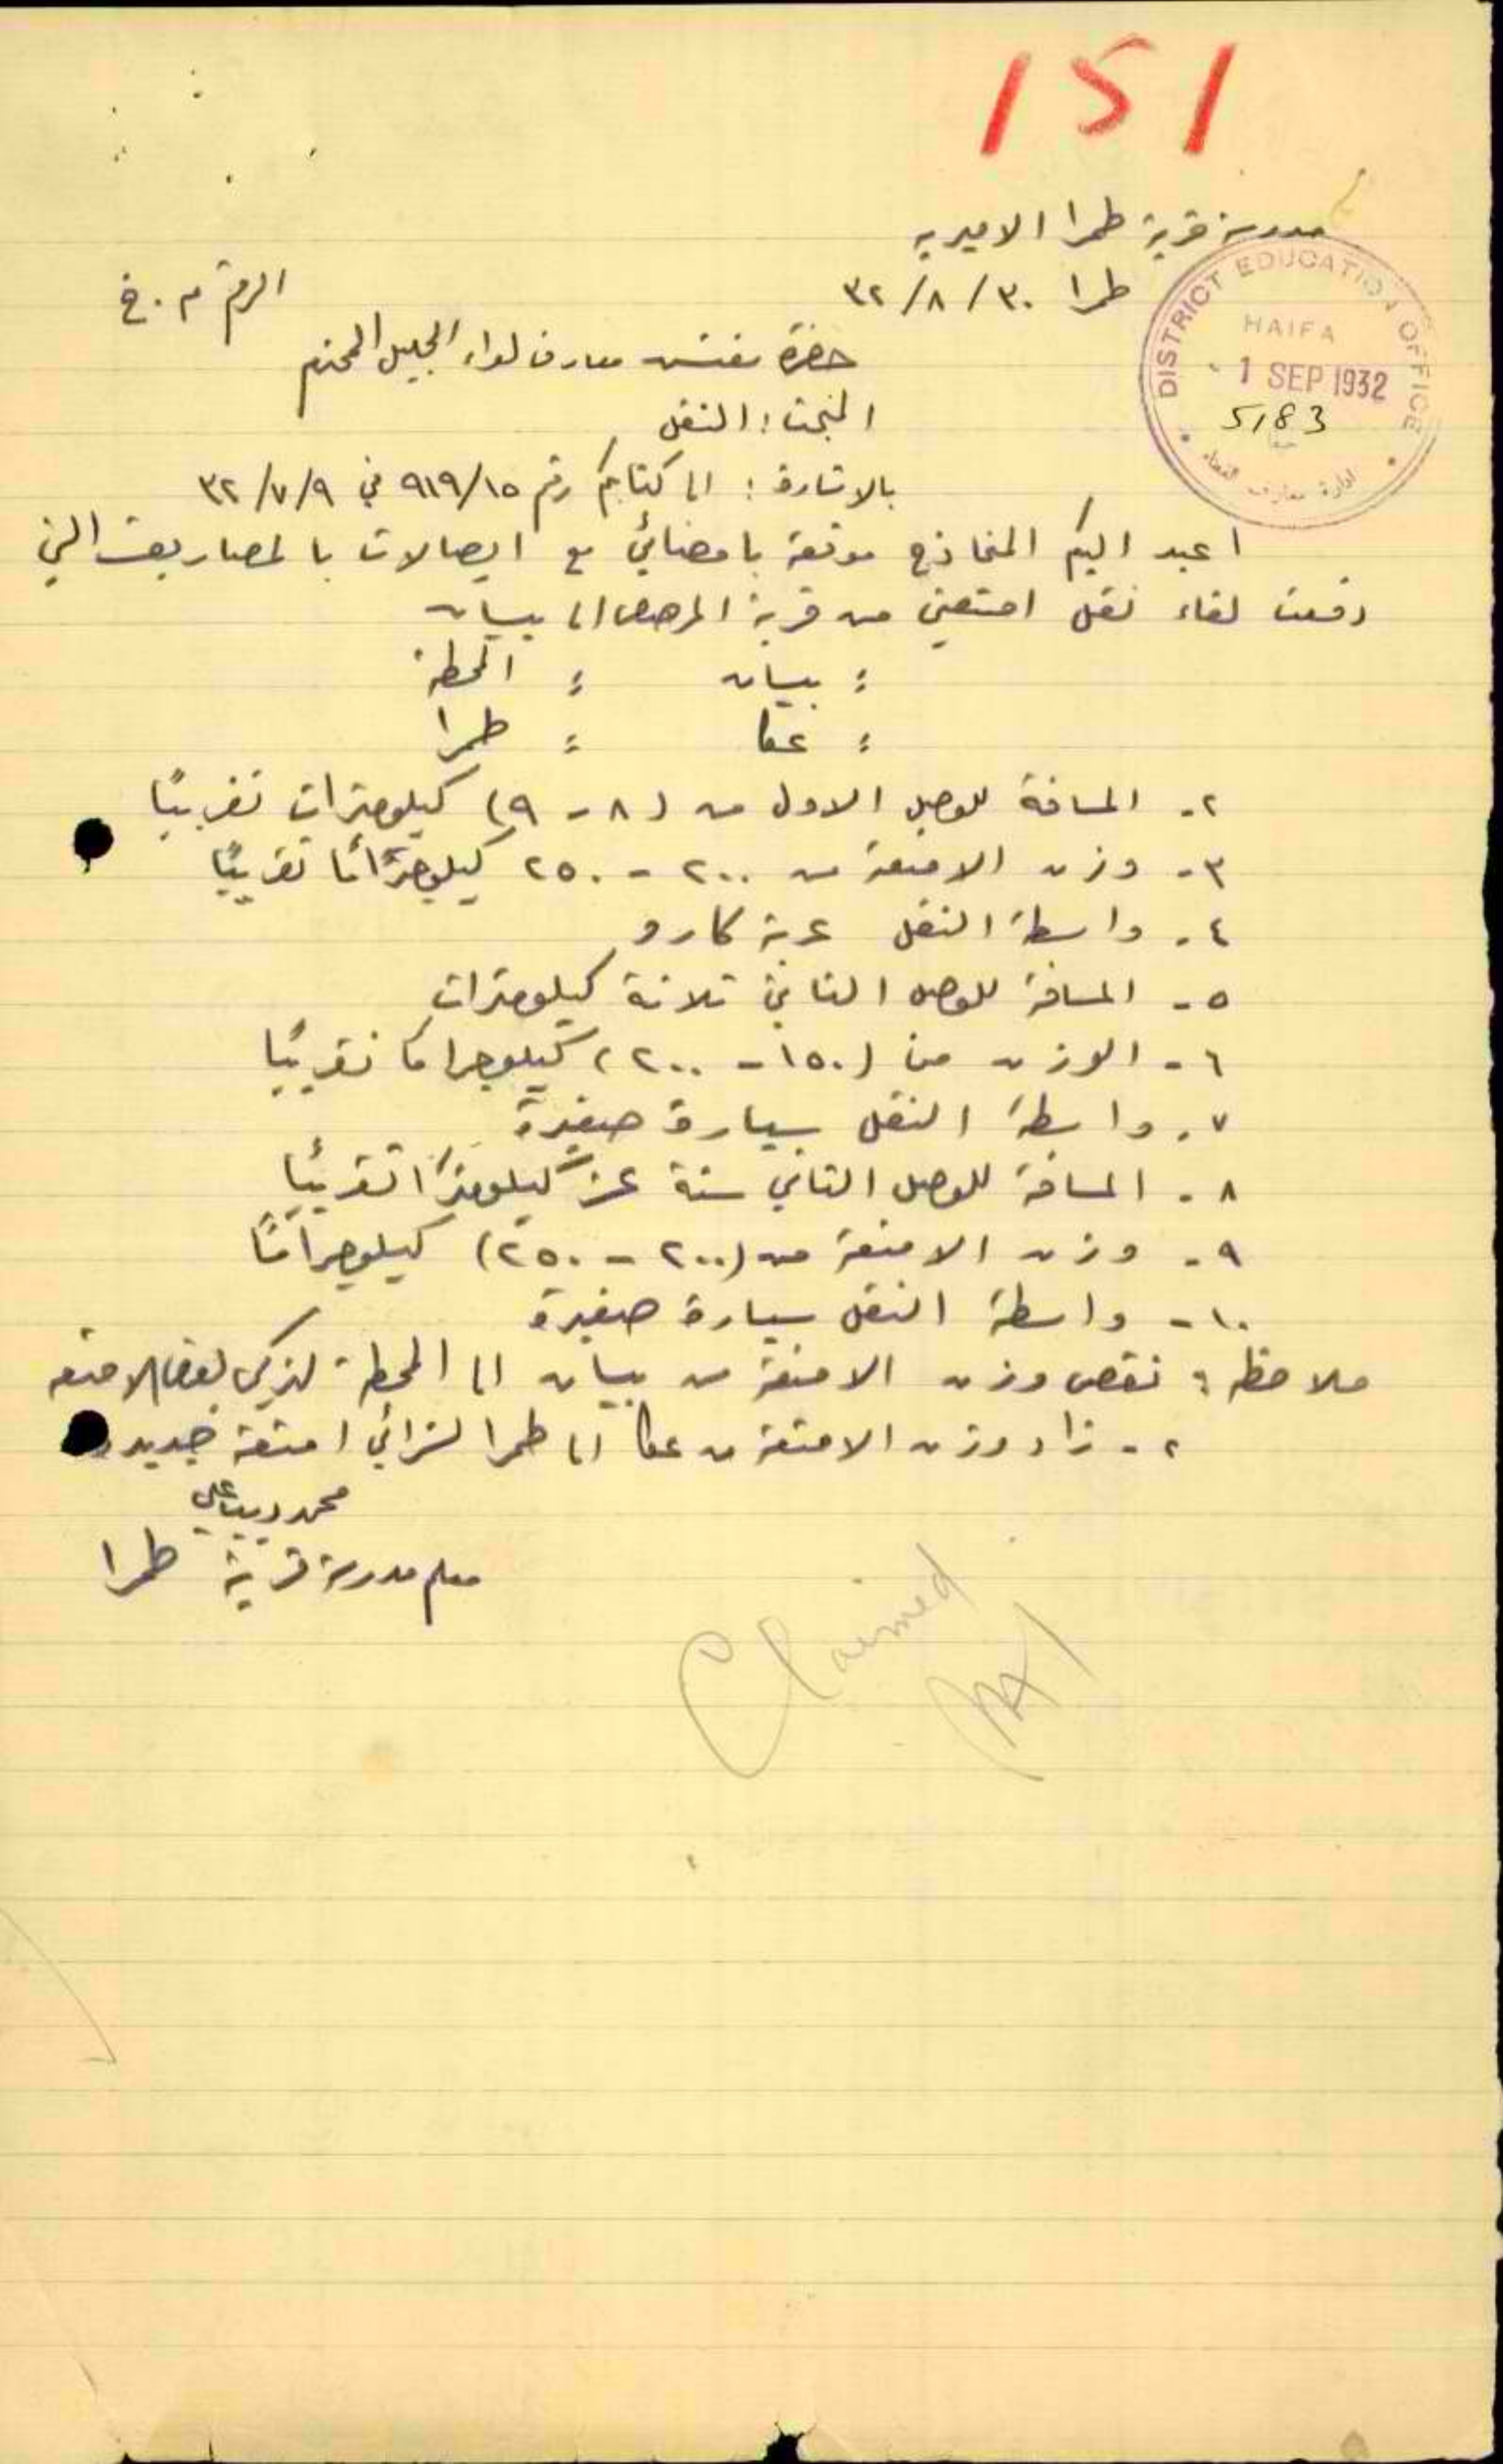 151
مدرسة قرية طمرا الاميريه
طمرا ٣٠/٨/٣٢
الرقم م . خ
DISTRICT EDUCATION OFFICE
HAIFA
1 SEP 1932
5183
حيفا
ادارة معارف القضاء
حضرة مفتش معارف لواء الجليل المحترم
المبحث : النقل
بالاشارة : الى كتابكم رقم ٩١٩/١٥ في ٩/٧/٣٢
اعيد اليكم النماذج موقعة بامضائي مع ايصالات بالمصاريف التي
دفعت لقاء نقل امتعتي من قرية المرصص الى بيسان
: بيسان : المحطة
: عكا : طمرا
٢- المسافة للوصل الاول من (٨ - ٩) كيلومترات تقريبًا
٣- وزن الامتعة من ٢٠٠ - ٢٥٠ كيلوجرامًا تقريبًا
٤- واسطة النقل عربة كارو
٥- المسافة للوصل الثاني ثلاثة كيلومترات
٦- الوزن من (١٥٠ - ٢٠٠) كيلوجراما تقريبًا
٧- واسطة النقل سيارة صغيرة
٨- المسافة للوصل الثاني ستة عشر كيلومترًا تقريبًا
٩- وزن الامتعة من (٢٠٠ - ٢٥٠) كيلوجرامًا
١٠- واسطة النقل سيارة صغيرة
ملاحظه : نقص وزن الامتعة من بيسان الى المحطة لتركي بعض الامتعه
٢- زاد وزن الامتعة من عكا الى طمرا لشرائي امتعة جديده
محمد ديب علي
معلم مدرسة قرية طمرا
Claimed